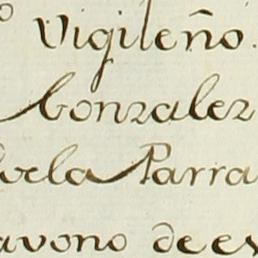 º Vigileño.
Gonzalez
de la Parra
avono de es